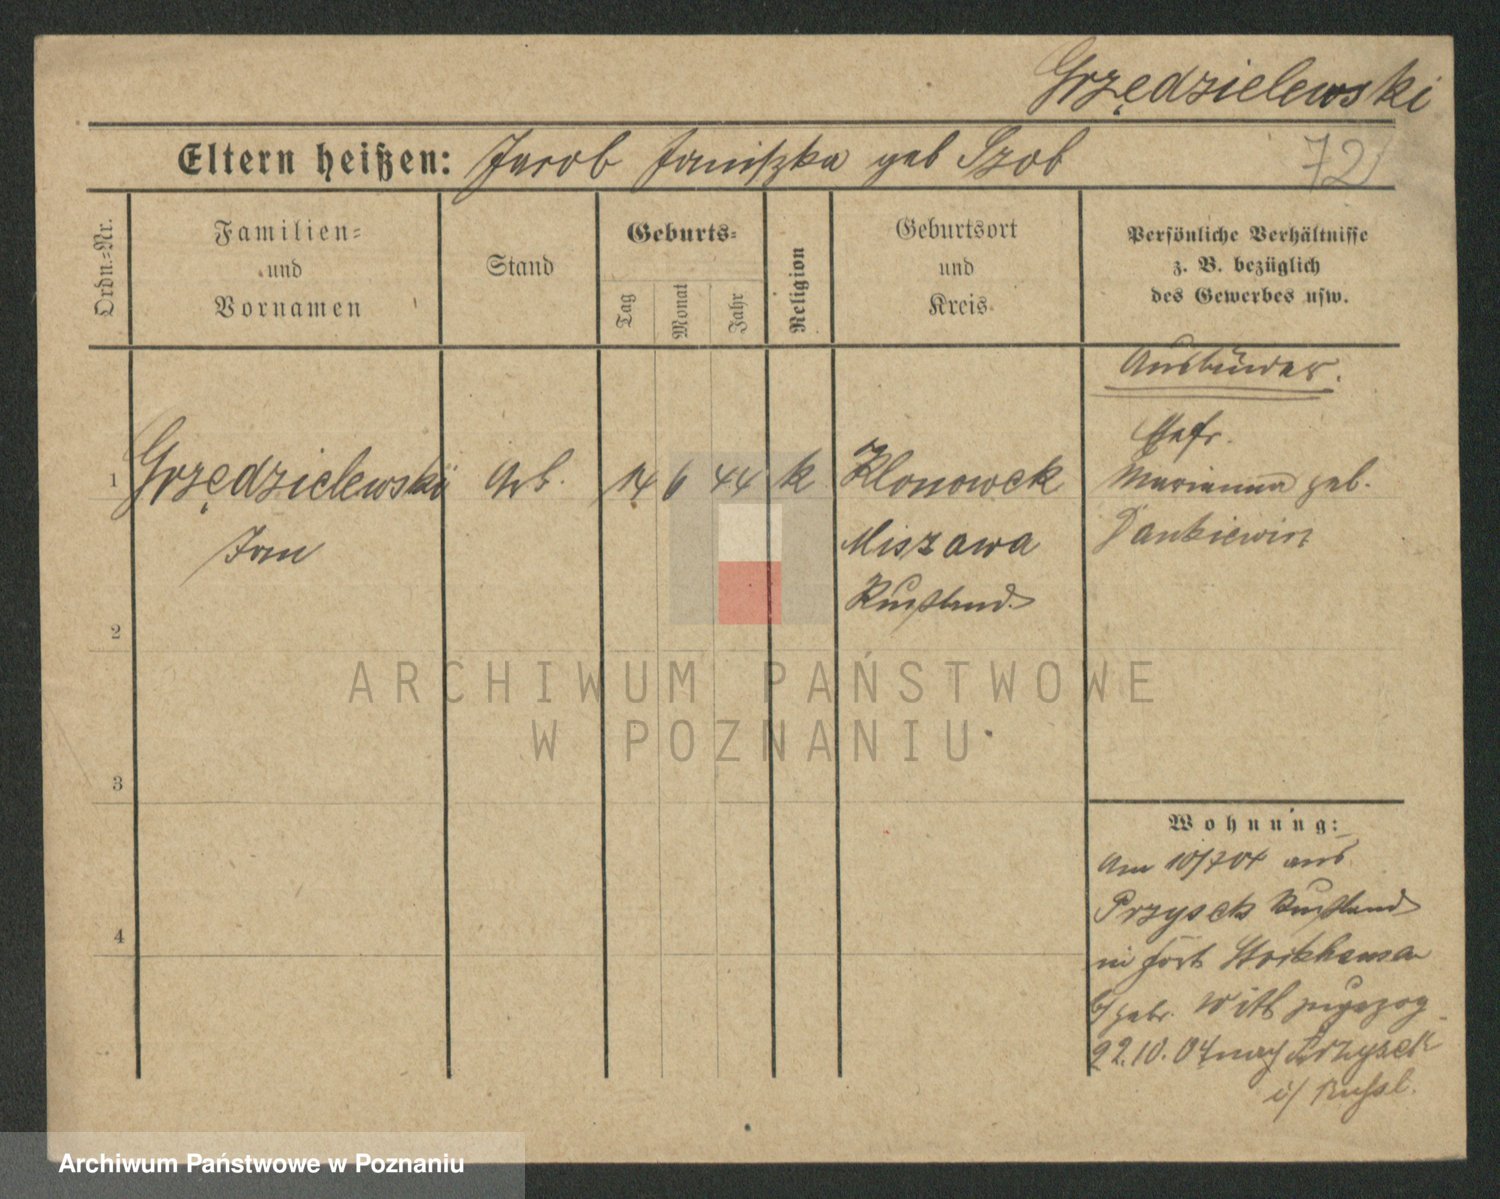 Grzędzielewski
Eltern heißen: Jacob Franiszka geb Szob
72
Ordn.=Nr.
Familien=
und
Vornamen
Stand
Geburts=
Tag
Monat
Jahr
Religion
Geburtsort
und
Kreis
Persönliche Verhältnisse
z. B. bezüglich
des Gewerbes usw.
Ausländer.
1
Grzędzielewski Arb. 14 6 44 k Klonowek
Jan
Miszawa
Rußland
Ehefr.
Marianna geb.
Dankiewicz
2
3
4
Wohnung:
Am 10/7 04 aus
Przysek Rußland
in fort
b/ Gebr. With zugezog.
22.10.04 nach Przysek
i/ Russl.
ARCHIWUM PAŃSTWOWE
W POZNANIU
Archiwum Państwowe w Poznaniu